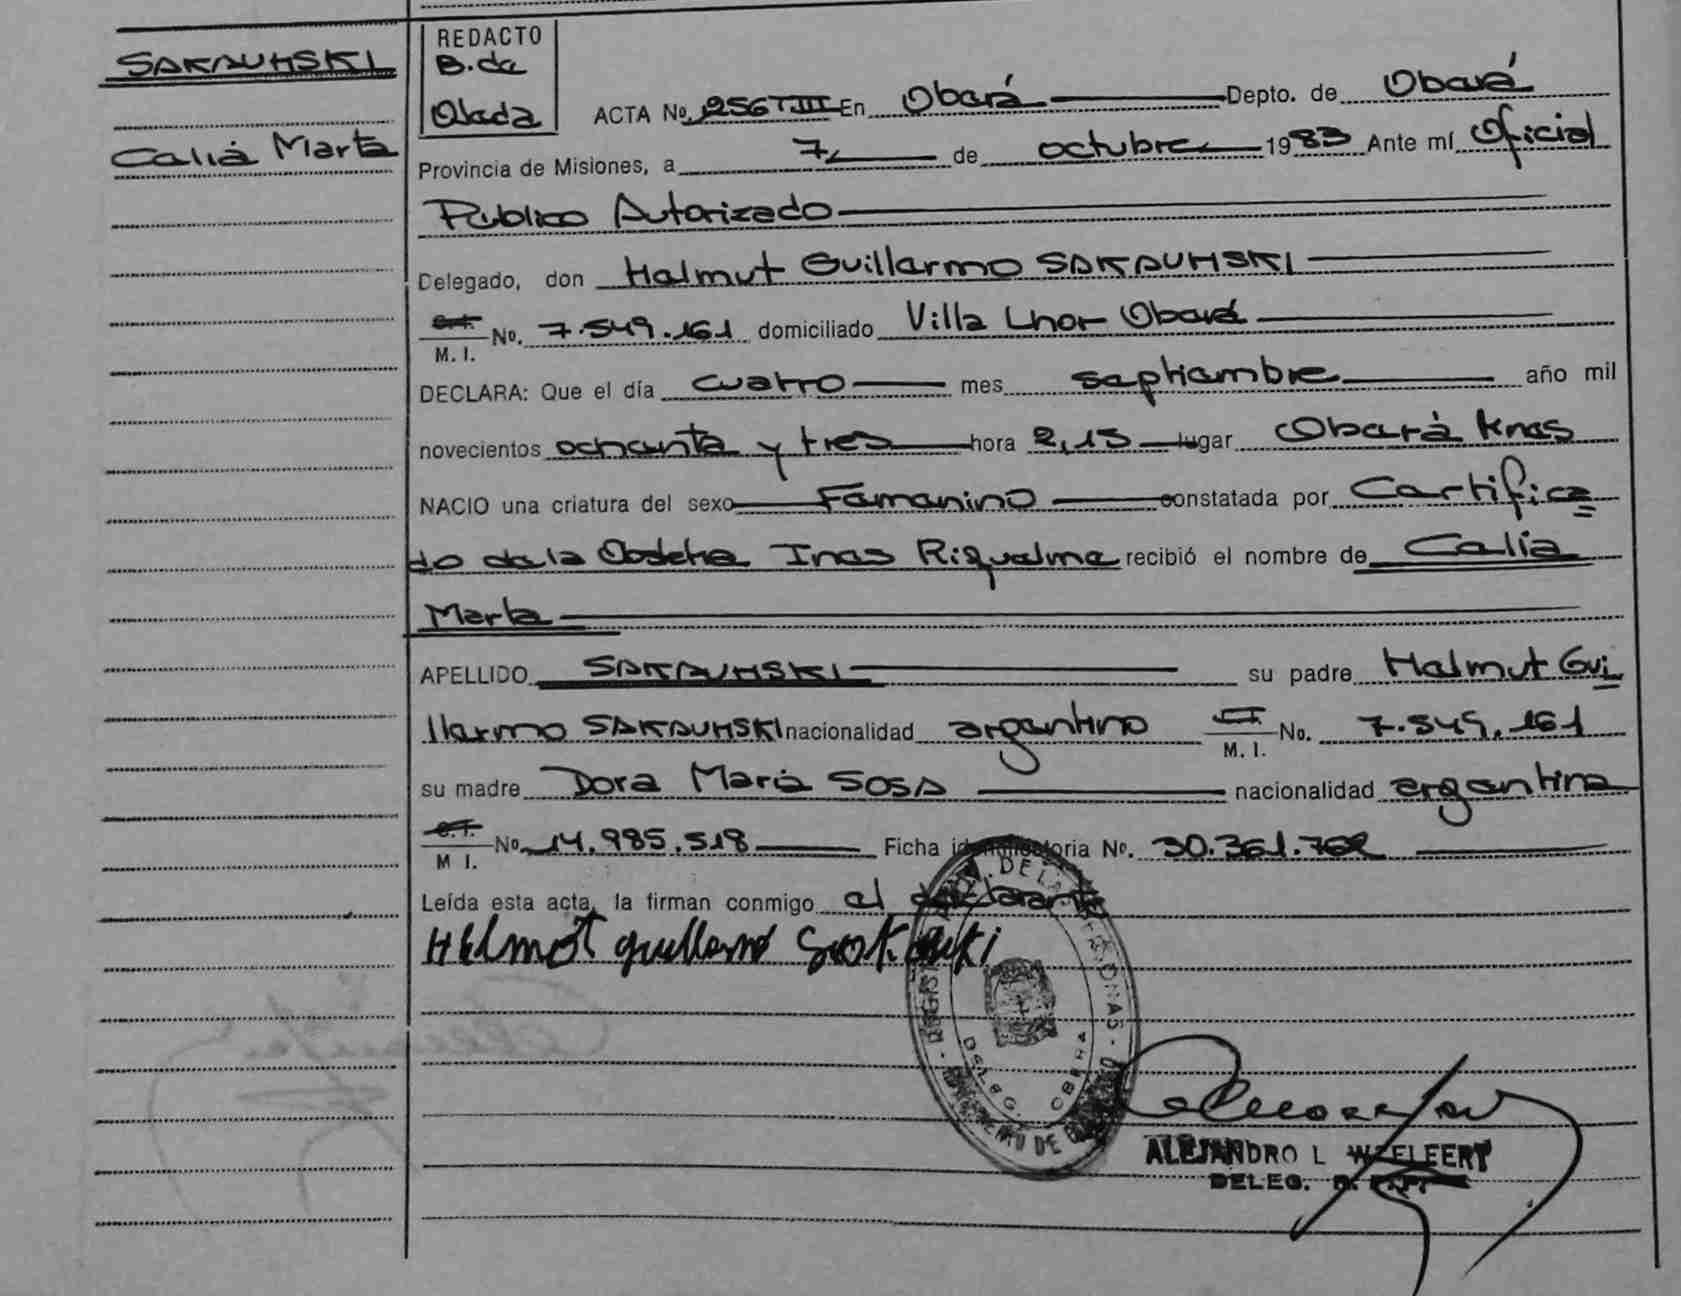 SAKAUHSKI
Celia Marta
REDACTO
B. de
Ojeda
ACTA No. 256 T III En Oberá Depto. de Oberá
Provincia de Misiones, a 7 de octubre 1983 Ante mí Oficial
Público Autorizado
Delegado, don Helmut Guillermo SAKAUHSKI
C.I. M. I. No. 7.549.161 domiciliado Villa Lhor Oberá
DECLARA: Que el día cuatro mes septiembre año mil
novecientos ochenta y tres hora 2,15 lugar Oberá Mnes
NACIO una criatura del sexo Femenino constatada por Certifica
do de la Obstetra Ines Riquelme recibió el nombre de Celia
Marta
APELLIDO SAKAUHSKI su padre Helmut Gui
llermo SAKAUHSKI nacionalidad argentino C.I. M. I. No. 7.549.161
su madre Dora María SOSA nacionalidad argentina
C.I. M I. No. 14.985.518 Ficha identificatoria No. 30.361.762
Leída esta acta, la firman conmigo el declarante
Helmot guillermo
DELEG. OBERA
ALEJANDRO L
DELEG.